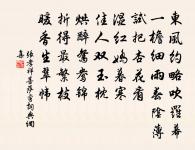 東風約略吹羅幕
一檐細雨春陰薄
試把杏花看
濕紅嬌暮寒
佳人双玉枕
烘醉鴛鴦錦
折得最繁枝
暖香生翠幃
張孝祥菩薩蠻詞典網
集